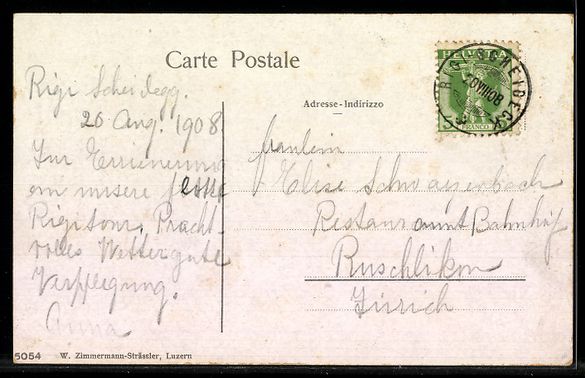 Carte Postale
Rigi Scheidegg.
20 Aug. 1908
Zur Erinnerung
an unsere flotte
Rigitour, Pracht-
volles Wetter gute
Verpflegung.
Anna
Adresse-Indirizzo
HELVETIA
5 FRANCO
RIGI-SCHEIDEGG
20.VIII.08
Fräulein
Elise Schwarzenbach
Restaurant Bahnhof
Ruschlikon
Zürich
5054 W. Zimmermann-Strässler, Luzern